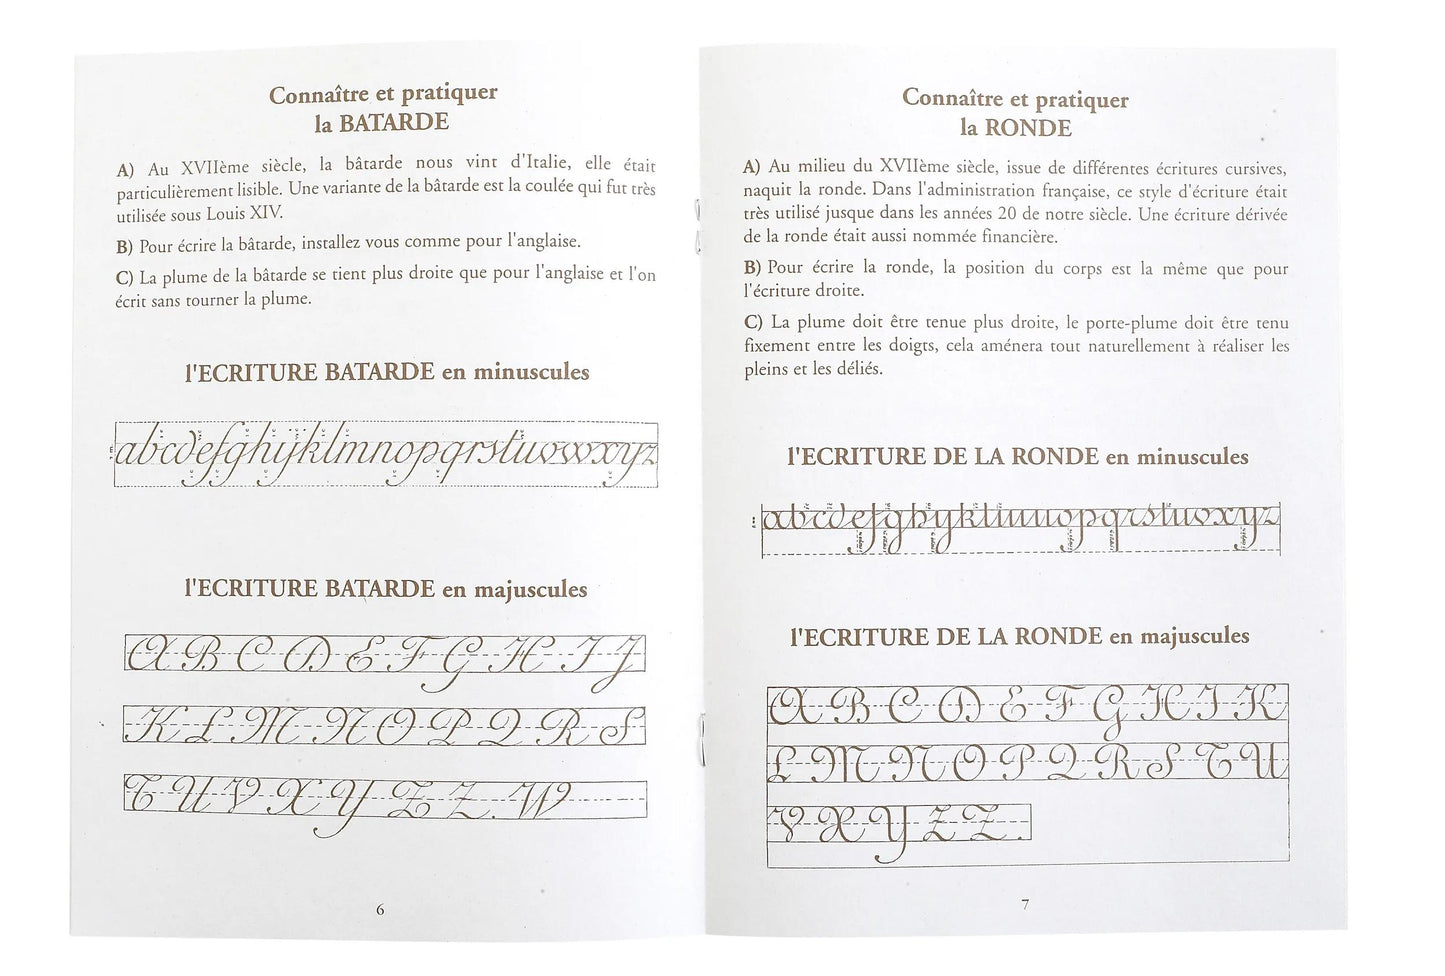 Connaître et pratiquer
la BATARDE
A) Au XVIIème siècle, la bâtarde nous vint d'Italie, elle était
particulièrement lisible. Une variante de la bâtarde est la coulée qui fut très
utilisée sous Louis XIV.
B) Pour écrire la bâtarde, installez vous comme pour l'anglaise.
C) La plume de la bâtarde se tient plus droite que pour l'anglaise et l'on
écrit sans tourner la plume.
l'ECRITURE BATARDE en minuscules
abcdefghijklmnopqrstuvwxyz
l'ECRITURE BATARDE en majuscules
A B C D E F G H I J
K L M N O P Q R S
T U V X Y Z Z. W
6
Connaître et pratiquer
la RONDE
A) Au milieu du XVIIème siècle, issue de différentes écritures cursives,
naquit la ronde. Dans l'administration française, ce style d'écriture était
très utilisé jusque dans les années 20 de notre siècle. Une écriture dérivée
de la ronde était aussi nommée financière.
B) Pour écrire la ronde, la position du corps est la même que pour
l'écriture droite.
C) La plume doit être tenue plus droite, le porte-plume doit être tenu
fixement entre les doigts, cela aménera tout naturellement à réaliser les
pleins et les déliés.
l'ECRITURE DE LA RONDE en minuscules
abcdefghijklmnopqrstuvxyz
l'ECRITURE DE LA RONDE en majuscules
A B C D E F G H I K
L M N O P Q R S T U
V X Y Z Z.
7